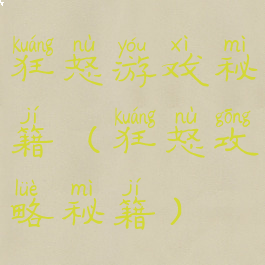 kuáng nù yóu xì mì
狂怒游戏秘
jí kuáng nù gōng
籍（狂怒攻
lüè mì jí
略秘籍）